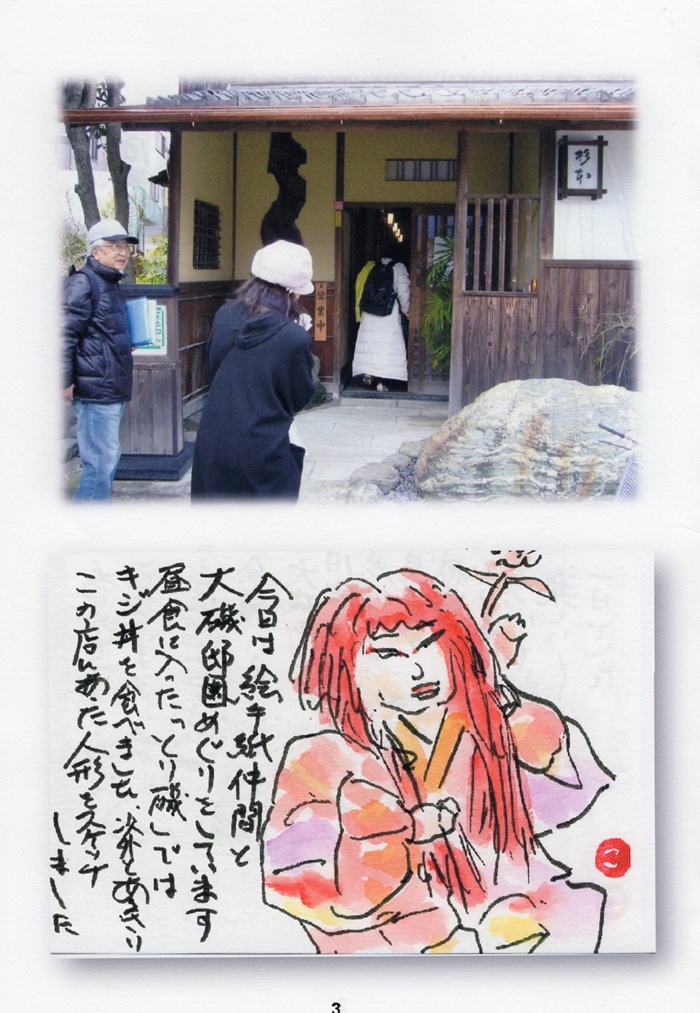 杉本
営業中
今日は絵手紙仲間と
大磯邸園めぐりをしています
昼食に入った「とり磯」では
キジ丼を食べました、
この店にあった人形をスケッチ
しました
こ
3